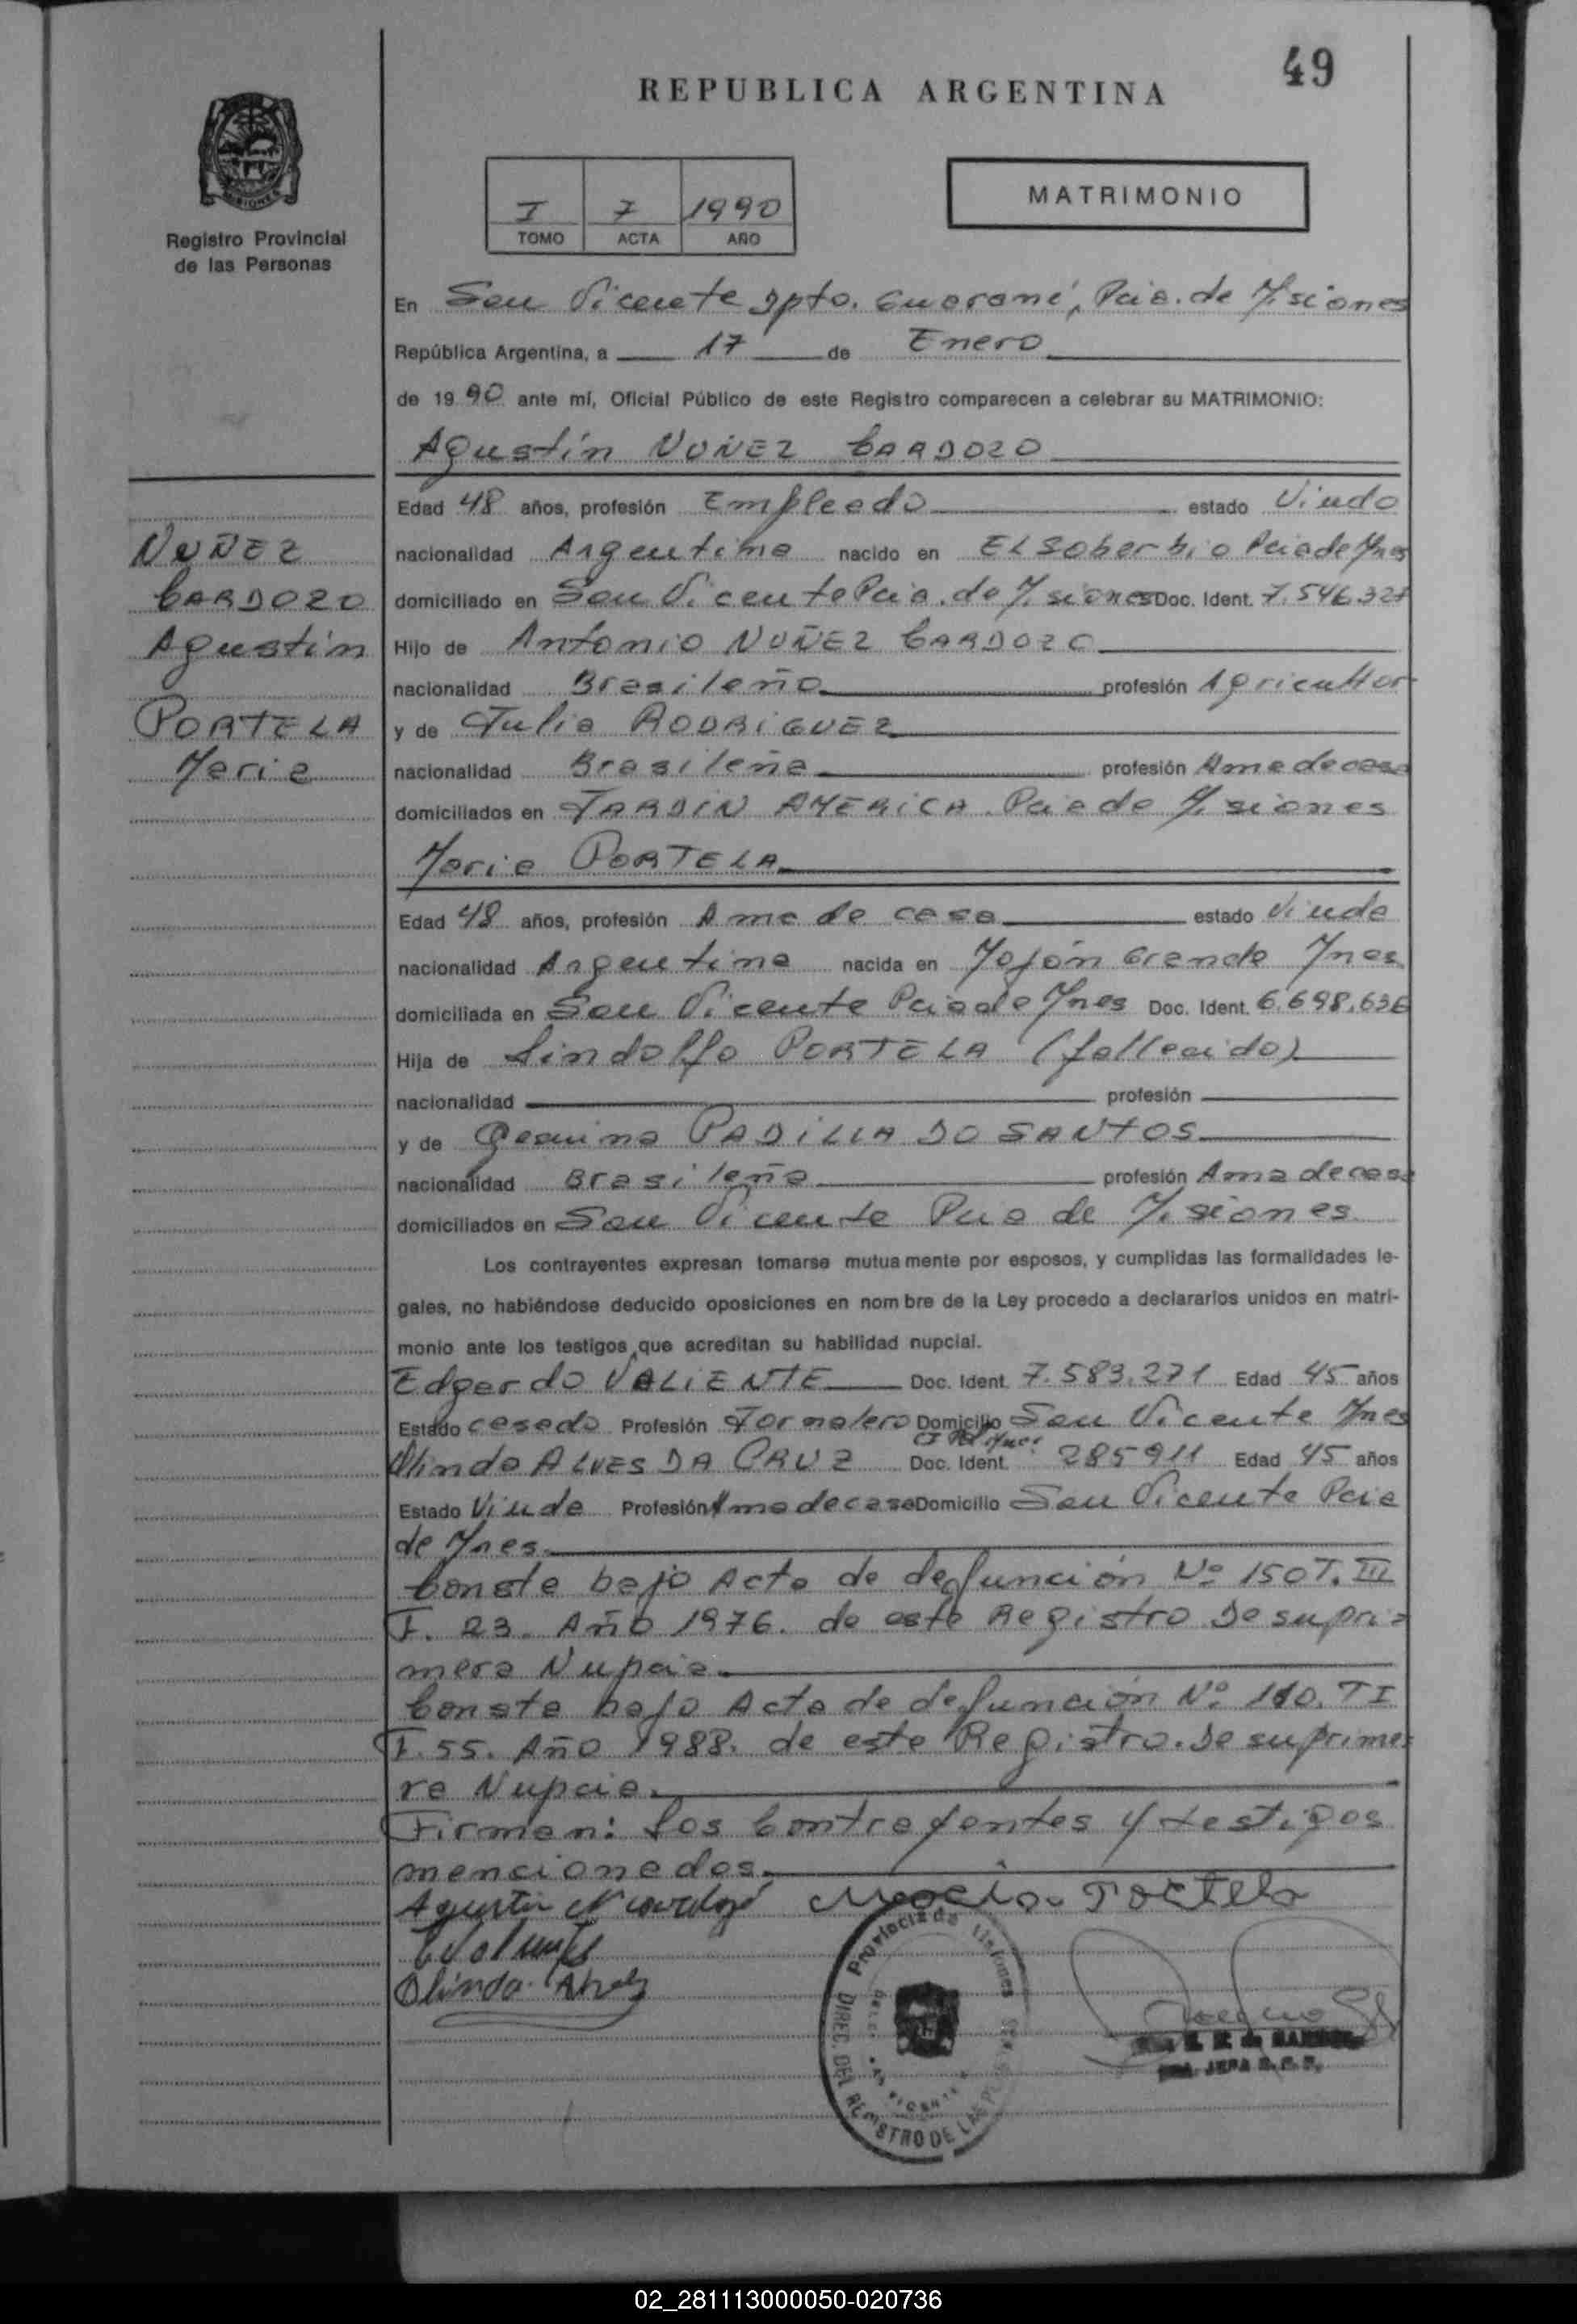 49
REPUBLICA ARGENTINA
MATRIMONIO
I 7 1990
TOMO ACTA AÑO
MISIONES
Registro Provincial
de las Personas
En San Vicente Dpto. Guaraní, Pcia. de Misiones
República Argentina, a 17 de Enero
de 1990 ante mí, Oficial Público de este Registro comparecen a celebrar su MATRIMONIO:
Agustín NUÑEZ CARDOZO
Edad 48 años, profesión Empleado estado Viudo
NUÑEZ
CARDOZO
Agustín
PORTELA
María
nacionalidad Argentina nacido en El Soberbio Pcia de Mnes
domiciliado en San Vicente Pcia. de Misiones Doc. Ident. 7.546.327
Hijo de Antonio NUÑEZ CARDOZO
nacionalidad Brasileño profesión Agricultor
y de Julia RODRIGUEZ
nacionalidad Brasileña profesión Ama de casa
domiciliados en JARDIN AMERICA Pcia de Misiones
María PORTELA
Edad 48 años, profesión Ama de casa estado Viuda
nacionalidad Argentina nacida en Mojón Grande Mnes
domiciliada en San Vicente Pcia de Mnes Doc. Ident. 6.698.636
Hija de Lindolfo PORTELA (fallecido)
nacionalidad profesión
y de PADILLA DO SANTOS
nacionalidad Brasileña profesión Ama de casa
domiciliados en San Vicente Pcia de Misiones
Los contrayentes expresan tomarse mutuamente por esposos, y cumplidas las formalidades le-
gales, no habiéndose deducido oposiciones en nombre de la Ley procedo a declararlos unidos en matri-
monio ante los testigos que acreditan su habilidad nupcial.
Edgardo VALIENTE Doc. Ident. 7.583.271 Edad 45 años
Estado casado Profesión Jornalero Domicilio San Vicente Mnes
Olinda ALVES DA CRUZ CI Pol Mnes Doc. Ident. 285911 Edad 45 años
Estado Viuda Profesión Ama de casa Domicilio San Vicente Pcia
de Mnes.
Consta bajo Acta de defunción Nº 150 T. III
F. 23. Año 1976. de este Registro De su pri=
mera Nupcia.
Consta bajo Acta de defunción Nº 110. T I
F. 55. Año 1988. de este Registro. De su prime=
ra Nupcia.
Firman: los Contrayentes y testigos
mencionados.
Agustin N cardozo María Portela
Olinda Alves
Provincia de Misiones
DIREC. DEL REGISTRO DE LAS
SAN VICENTE
02_281113000050-020736